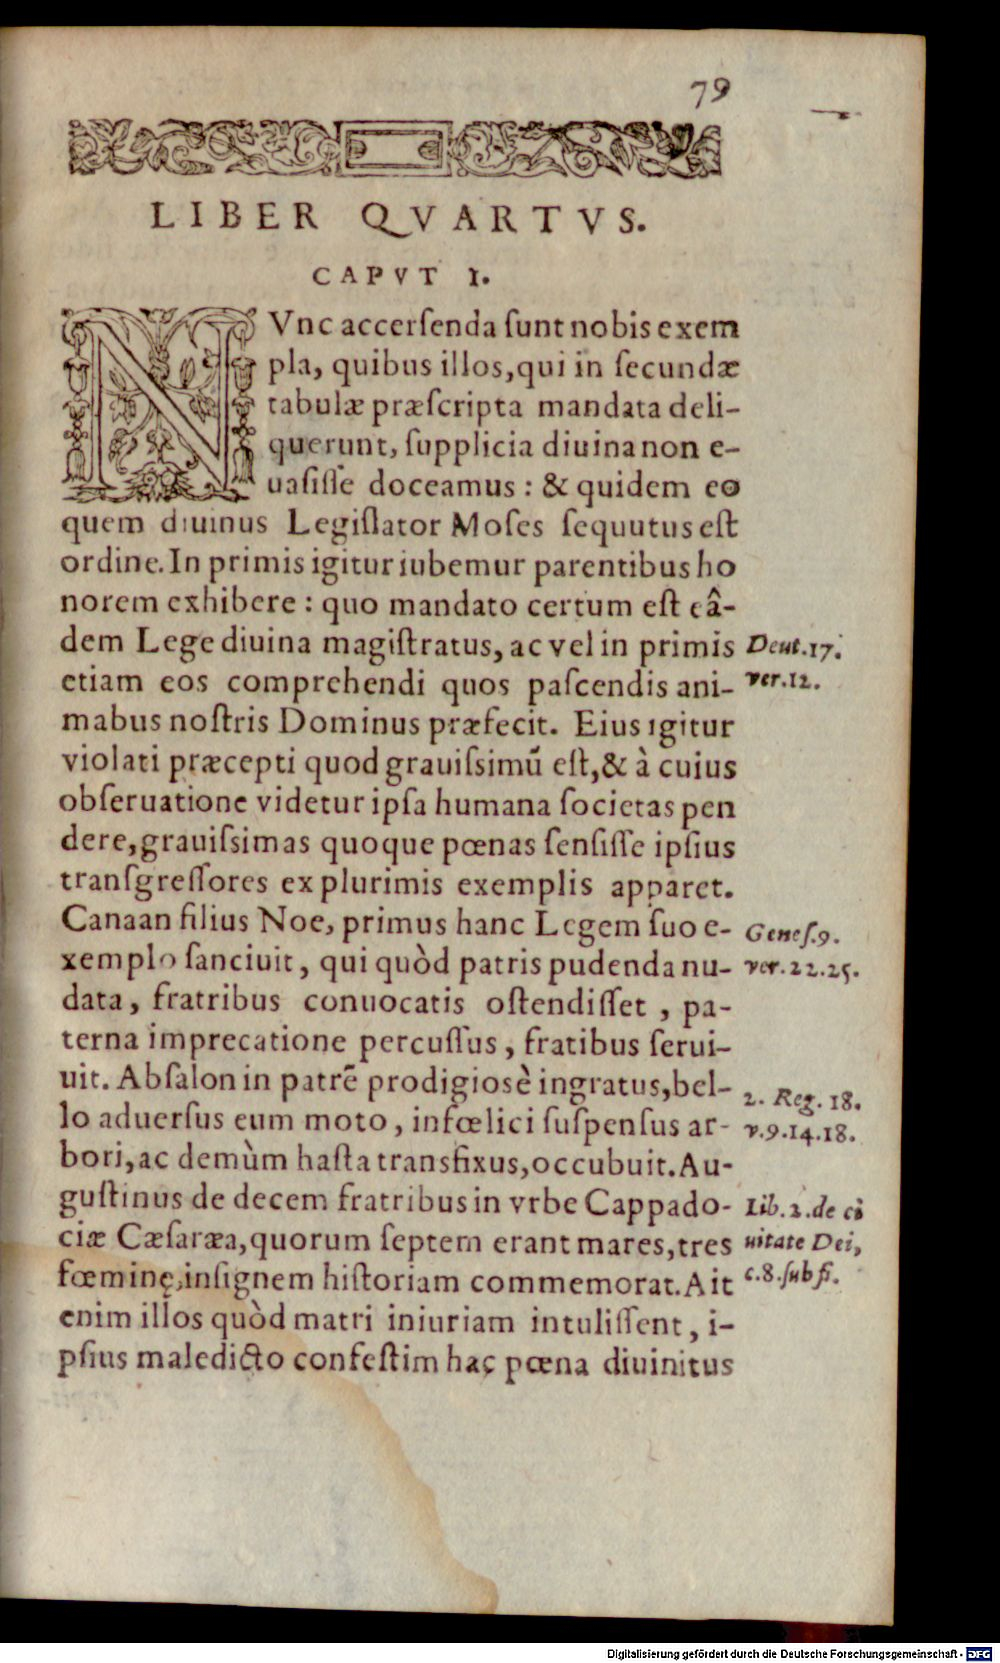 79
LIBER QVARTVS.
CAPVT I.
NVnc accerſenda ſunt nobis exem
pla, quibus illos, qui in ſecundæ
tabulæ præſcripta mandata deli-
querunt, ſupplicia diuina non e-
uaſiſſe doceamus : & quidem eo
quem diuinus Legiſlator Moſes ſequutus eſt
ordine. In primis igitur iubemur parentibus ho
norem exhibere : quo mandato certum eſt eâ-
dem Lege diuina magiſtratus, ac vel in primis
Deut.17.
etiam eos comprehendi quos paſcendis ani-
ver.12.
mabus noſtris Dominus præfecit. Eius igitur
violati præcepti quod grauiſsimū eſt, & à cuius
obſeruatione videtur ipſa humana ſocietas pen
dere, grauiſsimas quoque pœnas ſenſiſſe ipſius
tranſgreſſores ex plurimis exemplis apparet.
Canaan filius Noe, primus hanc Legem ſuo e-
Geneſ.9.
xemplo ſanciuit, qui quòd patris pudenda nu-
ver.22.25.
data, fratribus conuocatis oſtendiſſet , pa-
terna imprecatione percuſſus , fratibus ſerui-
uit. Abſalon in patrē prodigiosè ingratus, bel-
2. Reg. 18.
lo aduerſus eum moto , infœlici ſuſpenſus ar-
v.9.14.18.
bori, ac demùm haſta transfixus, occubuit. Au-
guſtinus de decem fratribus in vrbe Cappado-
Lib. 2. de ci
ciæ Cæſaræa, quorum ſeptem erant mares, tres
uitate Dei,
fœminę, inſignem hiſtoriam commemorat. Ait
c.8. ſub fi.
enim illos quòd matri iniuriam intuliſſent , i-
pſius maledicto confeſtim hac pœna diuinitus
Digitalisierung gefördert durch die Deutsche Forschungsgemeinschaft - DFG